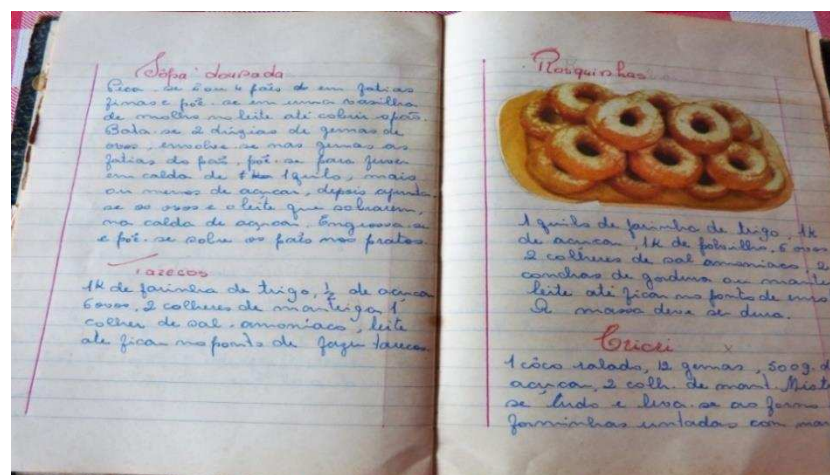 Sôpa dourada
Pica-se 3 ou 4 pais de em fatias
finas e põe-se em uma vasilha
de molho no leite até cobrir o pão.
Bata-se 2 duzias de gemas de
ovos, envolve-se nas gemas as
fatias do pão, põe-se para ferver
em calda de 1 quilo, mais
ou menos de açucar, depois ajunta-
se os ovos e o leite que sobrarem,
na calda de açucar. Engrossa-se
e põe-se sobre os pais nos pratos.
Tarecos
1k de farinha de trigo, 1/2 de açucar
6 ovos, 2 colheres de manteiga, 1
colher de sal-amoniaco, leite
até ficar no ponto de fazer tarecos.
Rosquinhas
1 quilo de farinha de trigo, 1k
de acucar, 1k de polvilho, 6 ovos
2 colheres de sal amoniaco, 2
conchas de gordura ou mante
leite até ficar no ponto de enro
A massa deve ser dura.
Cricri
1 côco ralado, 12 gemas, 500g. d
açucar, 2 colh. de mant. Mistu
se tudo e leva-se ao forno
forminhas untadas com man